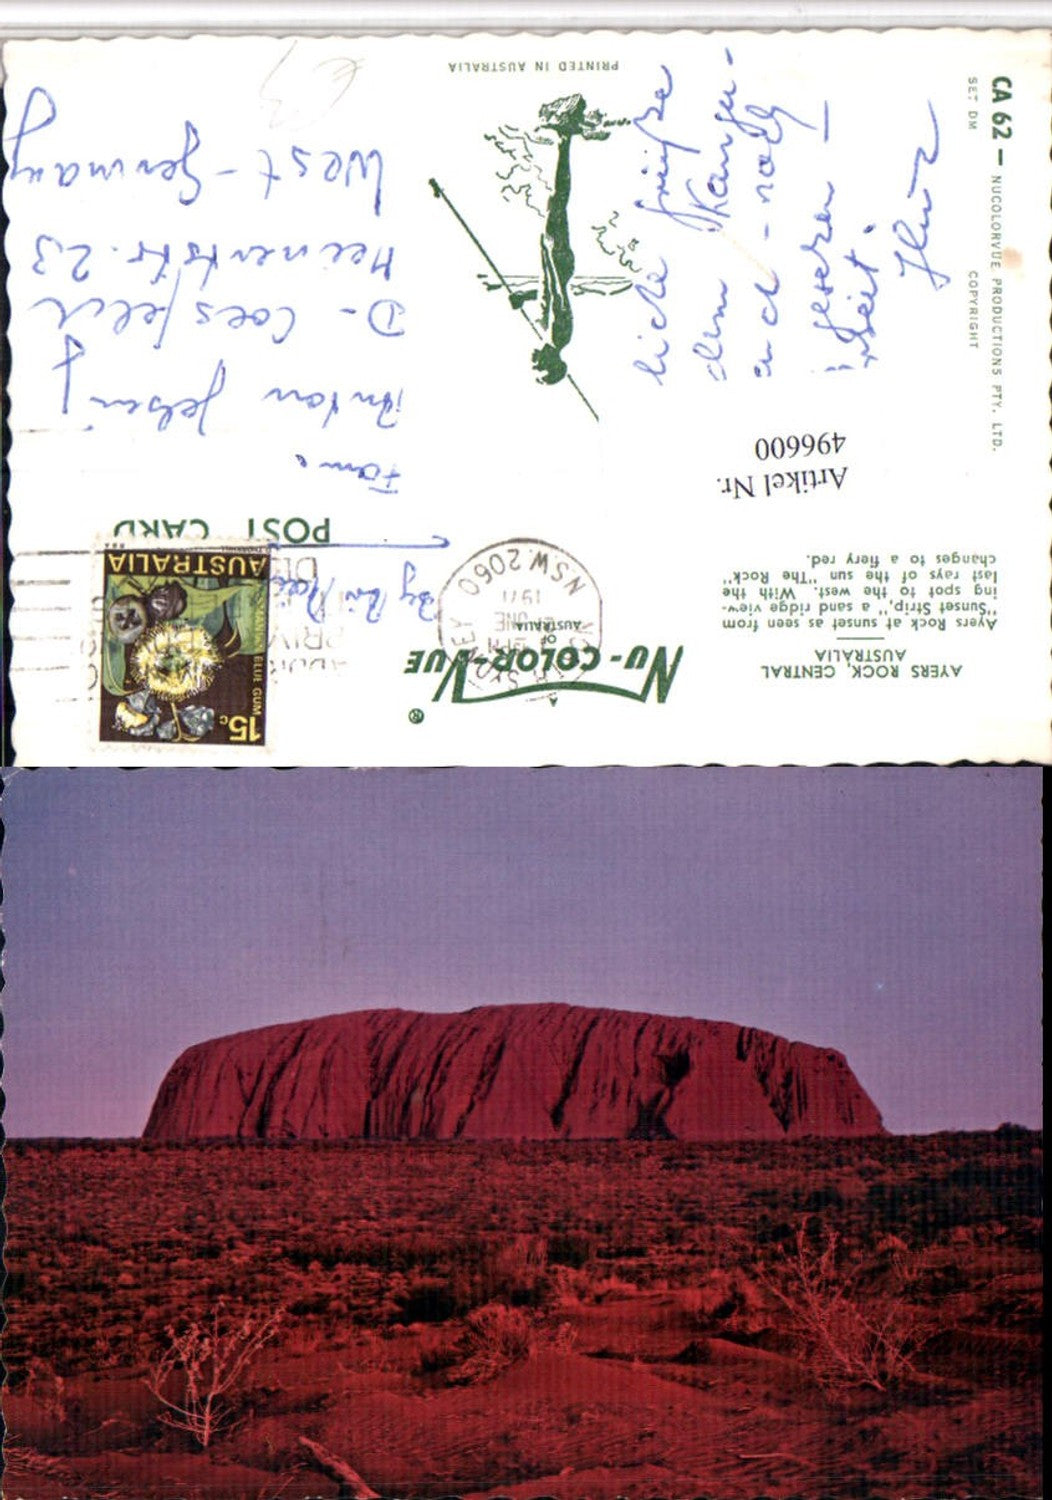 AYERS ROCK, CENTRAL
AUSTRALIA
Ayers Rock at sunset as seen from
"Sunset Strip," a sand ridge view-
ing spot to the west. With the
last rays of the sun "The Rock"
changes to a fiery red.
Artikel Nr.
496600
liebe Grüße
dem
und - noch
Zeit.
CA 62 — NUCOLORVUE PRODUCTIONS PTY. LTD.
SET DM COPYRIGHT
NU-COLOR-VUE
®
OF
AUSTRALIA
SYDNEY
PM
JNE
1971
NSW.2060
By Air Mail
15c
BLUE GUM
AUSTRALIA
POST CARD
Fam.
Anton
D- Coesfeld
23
West-Germany
PRINTED IN AUSTRALIA